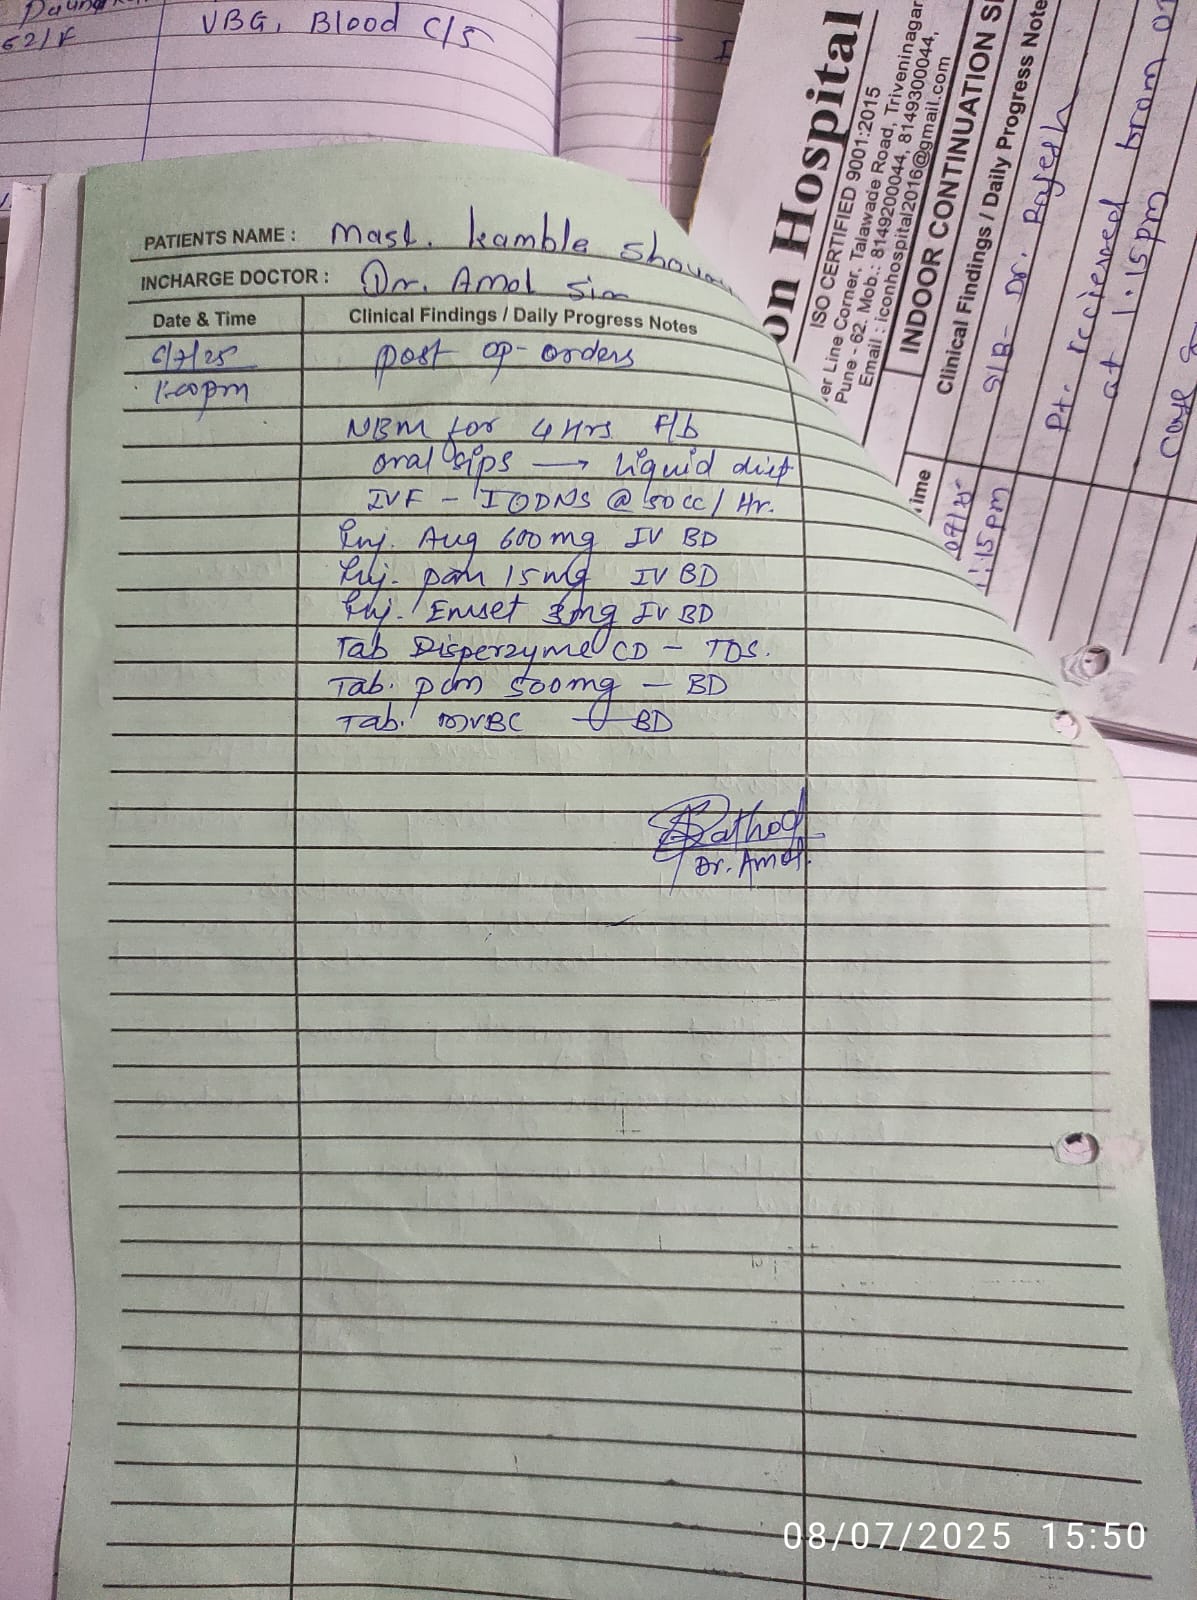 62/F
VBG, Blood C/S
on Hospital
ISO CERTIFIED 9001:2015
er Line Corner, Talawade Road, Triveninagar
Pune - 62. Mob.: 8149200044, 8149300044,
Email : iconhospital2016@gmail.com
INDOOR CONTINUATION S
Clinical Findings / Daily Progress Note
ime
S/B - Dr. Rajesh
1:15pm
Pt. recieved from
at 1:15pm
PATIENTS NAME : Mast. Kamble
INCHARGE DOCTOR : Dr. Amol Sir
Date & Time Clinical Findings / Daily Progress Notes
6/7/25 post op- orders
1:00pm
NBM for 4 Hrs F/b
oral sips → liquid diet
IVF - @ 50cc/Hr.
Inj. Aug 600mg IV BD
Inj. pan 15mg IV BD
Inj. Emset 3mg IV BD
Tab Disperzyme CD - TDS.
Tab. pcm 500mg - BD
Tab. MVBC - BD
Rathod
Dr. Amol.
08/07/2025 15:50